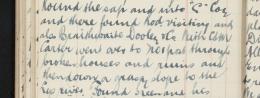 round the sap and into "C" Coy
and there found Nod visiting and
also Braithwaite Dooley & Co. With
Carter went over to No 1 post through
broken houses and ruins and
a grassy slope to the
Lys river. Found Green and his